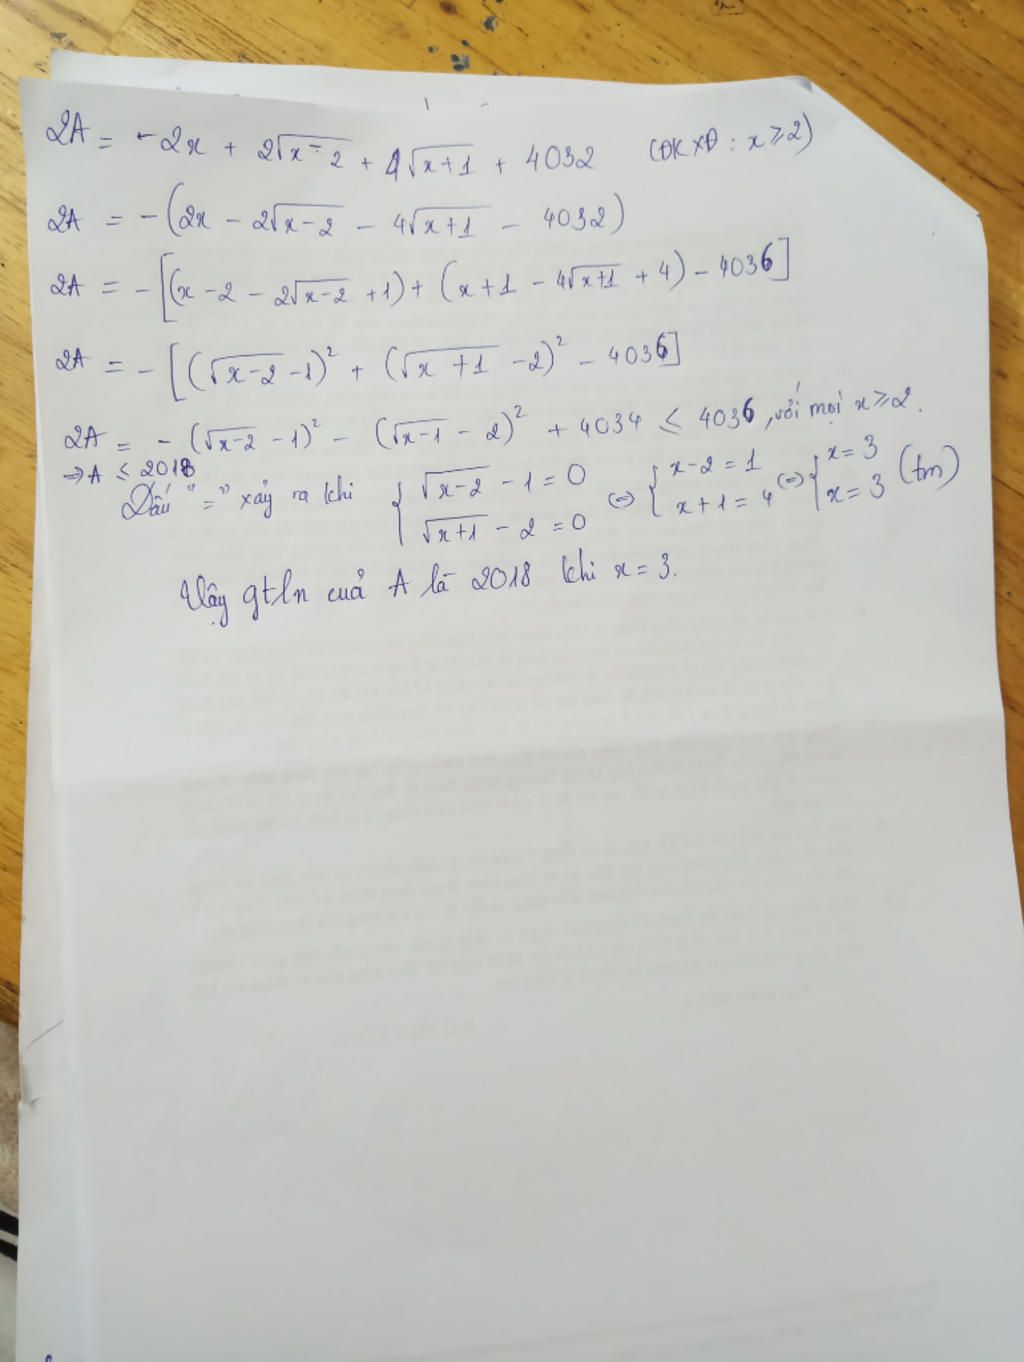 2A = -2x + 2√(x-2) + 4√(x+1) + 4032 (ĐKXĐ: x ≥ 2)
2A = -(2x - 2√(x-2) - 4√(x+1) - 4032)
2A = -[(x-2 - 2√(x-2) + 1) + (x+1 - 4√(x+1) + 4) - 4036]
2A = -[(√(x-2) - 1)² + (√(x+1) - 2)² - 4036]
2A = -(√(x-2) - 1)² - (√(x-1) - 2)² + 4034 ≤ 4036, với mọi x ≥ 2.
⇒ A ≤ 2018
Dấu "=" xảy ra khi { √(x-2) - 1 = 0 ⇔ { x-2 = 1 ⇔ { x = 3 (tm)
√(x+1) - 2 = 0 x+1 = 4 x = 3
Vậy gtln cuả A là 2018 khi x = 3.